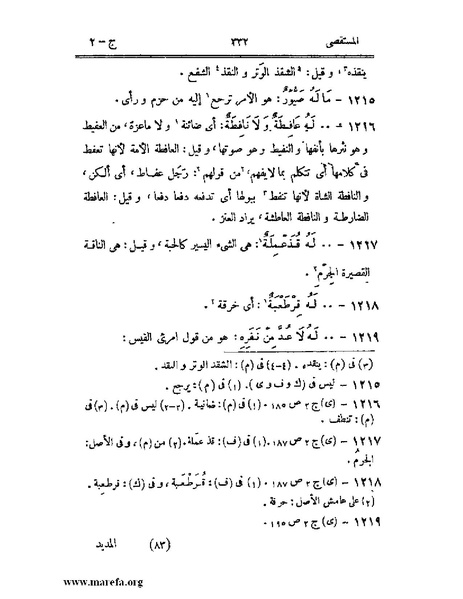 المستقصى ٣٣٢ ج – ٢
ينقذه٣، و قيل: ٤الشقذ الوَتر و النقذ٤ الشفع .
١٢١٥ – مَا لَهُ صَيُّورٌ: هو الامر ترجع١ إليه من حزم و رأى.
١٢١٦ – .. لَهُ عَافِطَةٌ وَلَا نَافِطَةٌ: أى ضائنة١ و لا ماعزة، من العفيط
و هو نثرها بأنفها و النفيط و هو صوتها، و قيل: العافطة الأمة لأنها تعفط
فى كلامها أى تتكلم بما لا يفهم، ٢من قولهم٢: رجل عفاط، أى ألكن،
و النافطة الشاة لأنها تنفط٣ ببولها أى تدفعه دفعا دفعا، و قيل: العافطة
الضارطة و النافطة العاطسة، يراد العنز.
١٢١٧ – .. لَهُ قُذَعْمِلَةٌ١: هى الشىء اليسير كالحبة، و قيل: هى الناقة
القصيرة الجِرْم٢.
١٢١٨ – .. لَهُ قِرْطَعْبَةٌ١: أى خرقة٢.
١٢١٩ – .. لَهُ لَا عُدَّ مِنْ نَفَرِهِ: هو من قول امرئ القيس:
(٣) فى (م): ينقده . (٤-٤) فى (م): الشقد الوتر و النقد .
١٢١٥ – ليس فى (ك و ف و ى). (١) فى (م): يرجع .
١٢١٦ – (ى) ج ٢ ص ١٨٥ . (١) فى (م): ضمانية . (٢-٢) ليس فى (م). (٣) فى
(م): تنطف .
١٢١٧ – (ى) ج ٢ ص ١٨٧ . (١) فى (ف): قذ عملة . (٢) من (م)، و فى الأصل:
الجرمُ .
١٢١٨ – (ى) ج ٢ ص ١٨٧ . (١) فى (ف): قُرَطْعَبة، و فى (ك): فرطعبة .
(٢) على هامش الأصل: حرقة .
١٢١٩ – (ى) ج ٢ ص ١٩٥ .
(٨٣) المديد
www.marefa.org